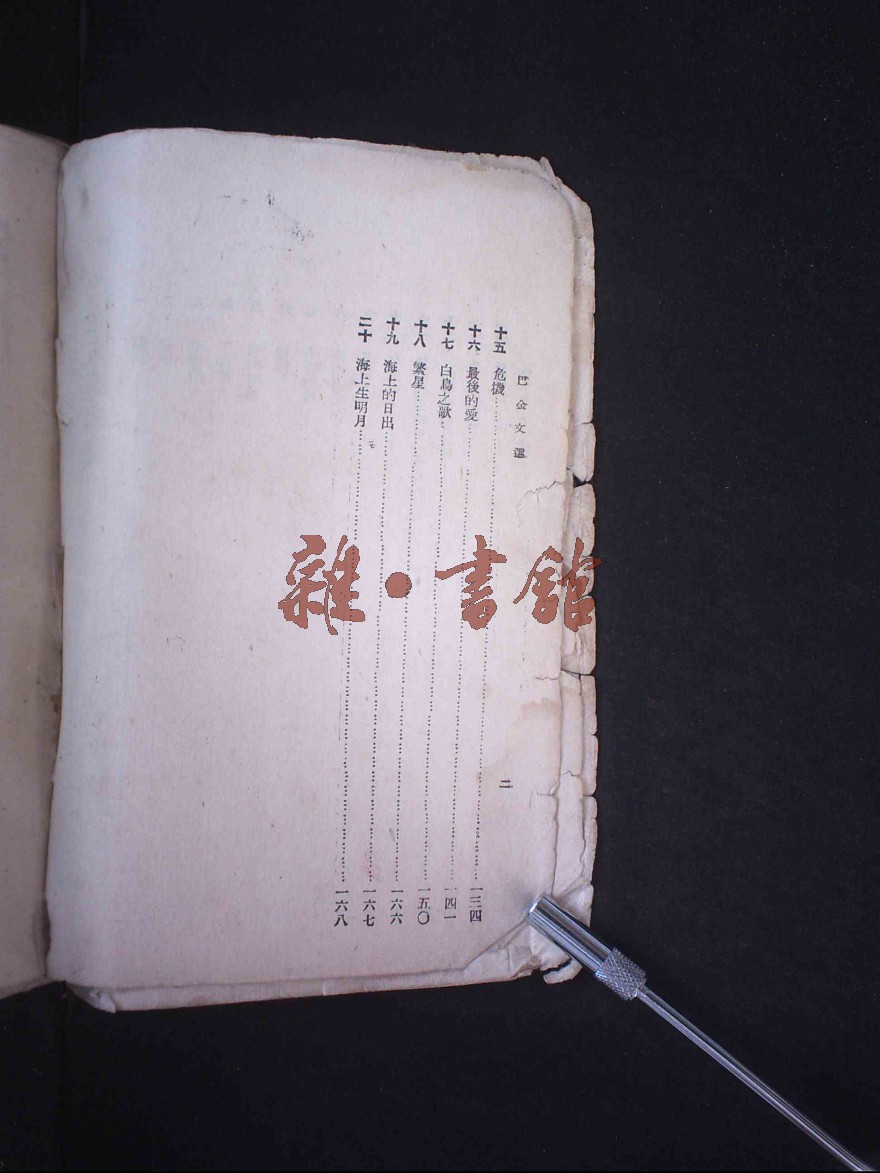 巴金文選
十五 危機……一三四
十六 最後的愛……一四一
十七 白鳥之歌……一五〇
十八 繁星……一六六
十九 海上的日出……一六七
二十 海上生明月……一六八
二
雜·書館